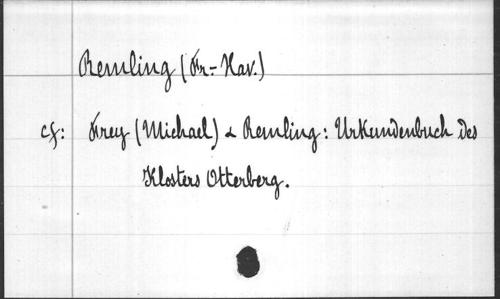 Remling (Fr.-Xav.)
cf: Frey (Michael) & Remling: Urkundenbuch des
Klosters Otterberg.